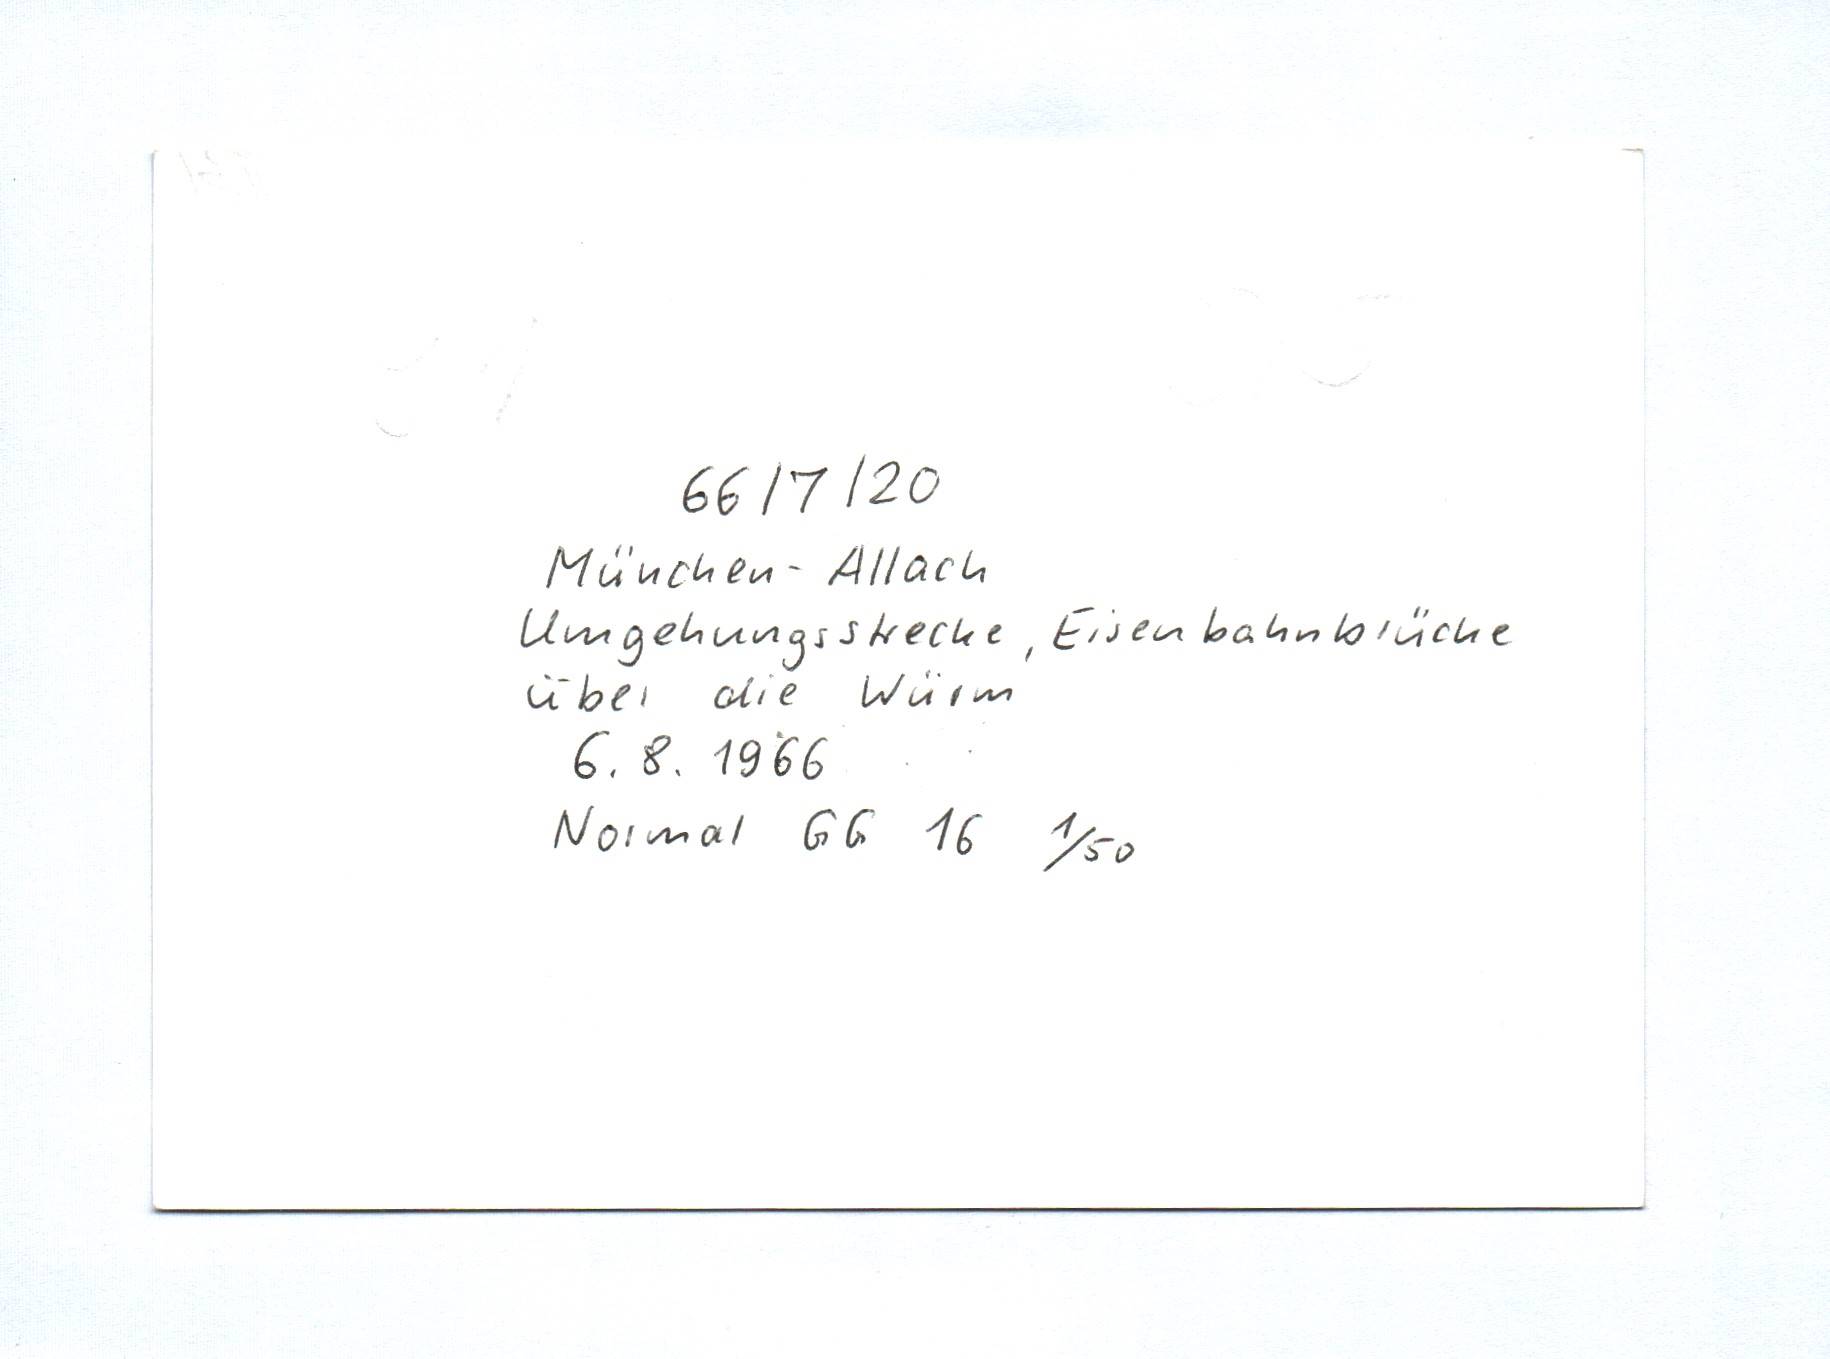 66/7/20
München-Allach
Umgehungsstrecke, Eisenbahnbrücke
über die Würm
6. 8. 1966
Normal GG 16 1/50